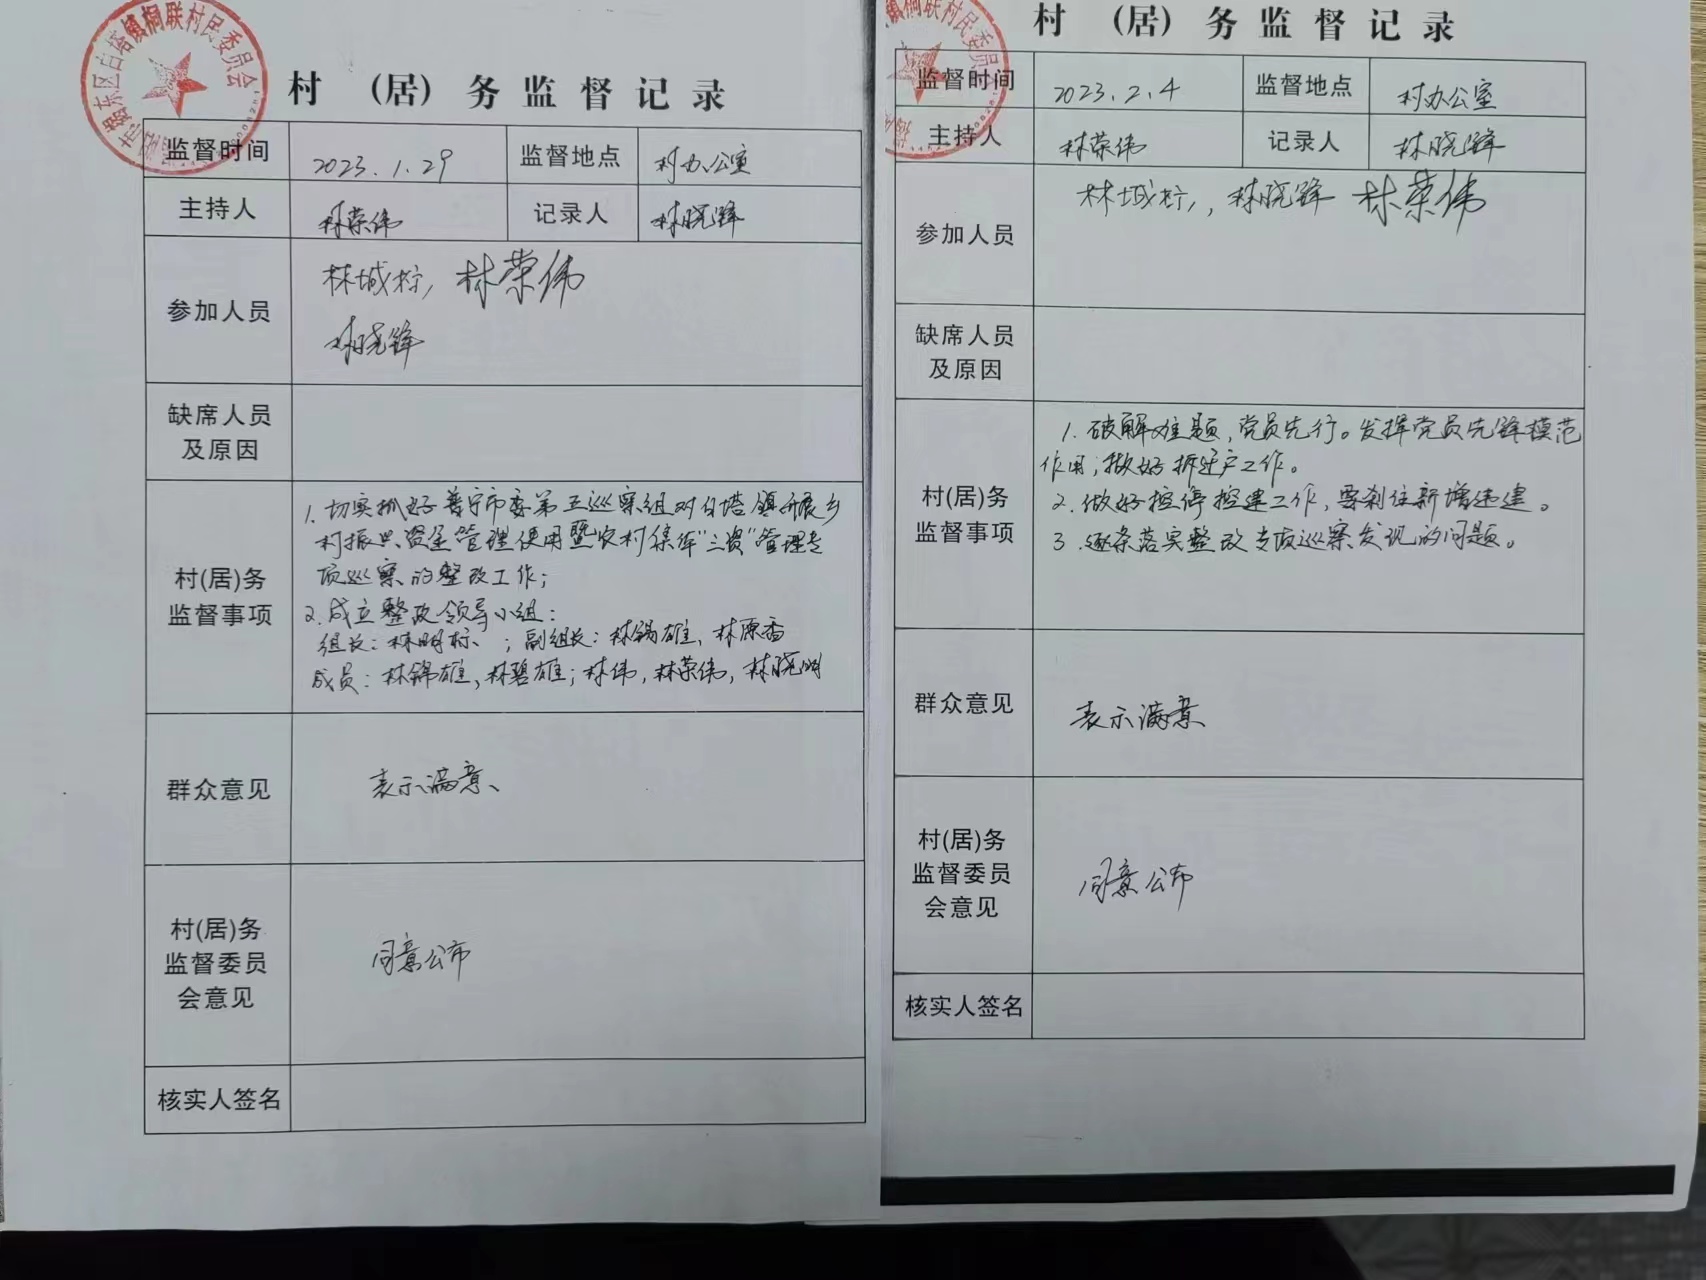 村（居）务监督记录
监督时间 2023.1.29 监督地点 村办公室
主持人 林荣伟 记录人 林晓锋
参加人员 林城柠, 林荣伟
林晓锋
缺席人员
及原因
村(居)务
监督事项
1.切实抓好普宁市委第五巡察组对白塔镇开展乡
村振兴资金管理使用暨农村集体“三资”管理专
项巡察的整改工作;
2.成立整改领导小组:
组长:林明标、;副组长:林锡雄、林原香
成员:林锦雄,林碧雄;林伟,林荣伟,林晓明
群众意见 表示满意、
村(居)务
监督委员
会意见
同意公布
核实人签名
村（居）务监督记录
监督时间 2023.2.4 监督地点 村办公室
主持人 林荣伟 记录人 林晓锋
参加人员 林城柠,,林晓锋 林荣伟
缺席人员
及原因
村(居)务
监督事项
1.破解难题,党员先行。发挥党员先锋模范
作用;做好拆迁户工作。
2.做好控停控建工作,要刹住新增违建。
3.逐条落实整改专项巡察发现的问题。
群众意见 表示满意
村(居)务
监督委员
会意见
同意公布
核实人签名